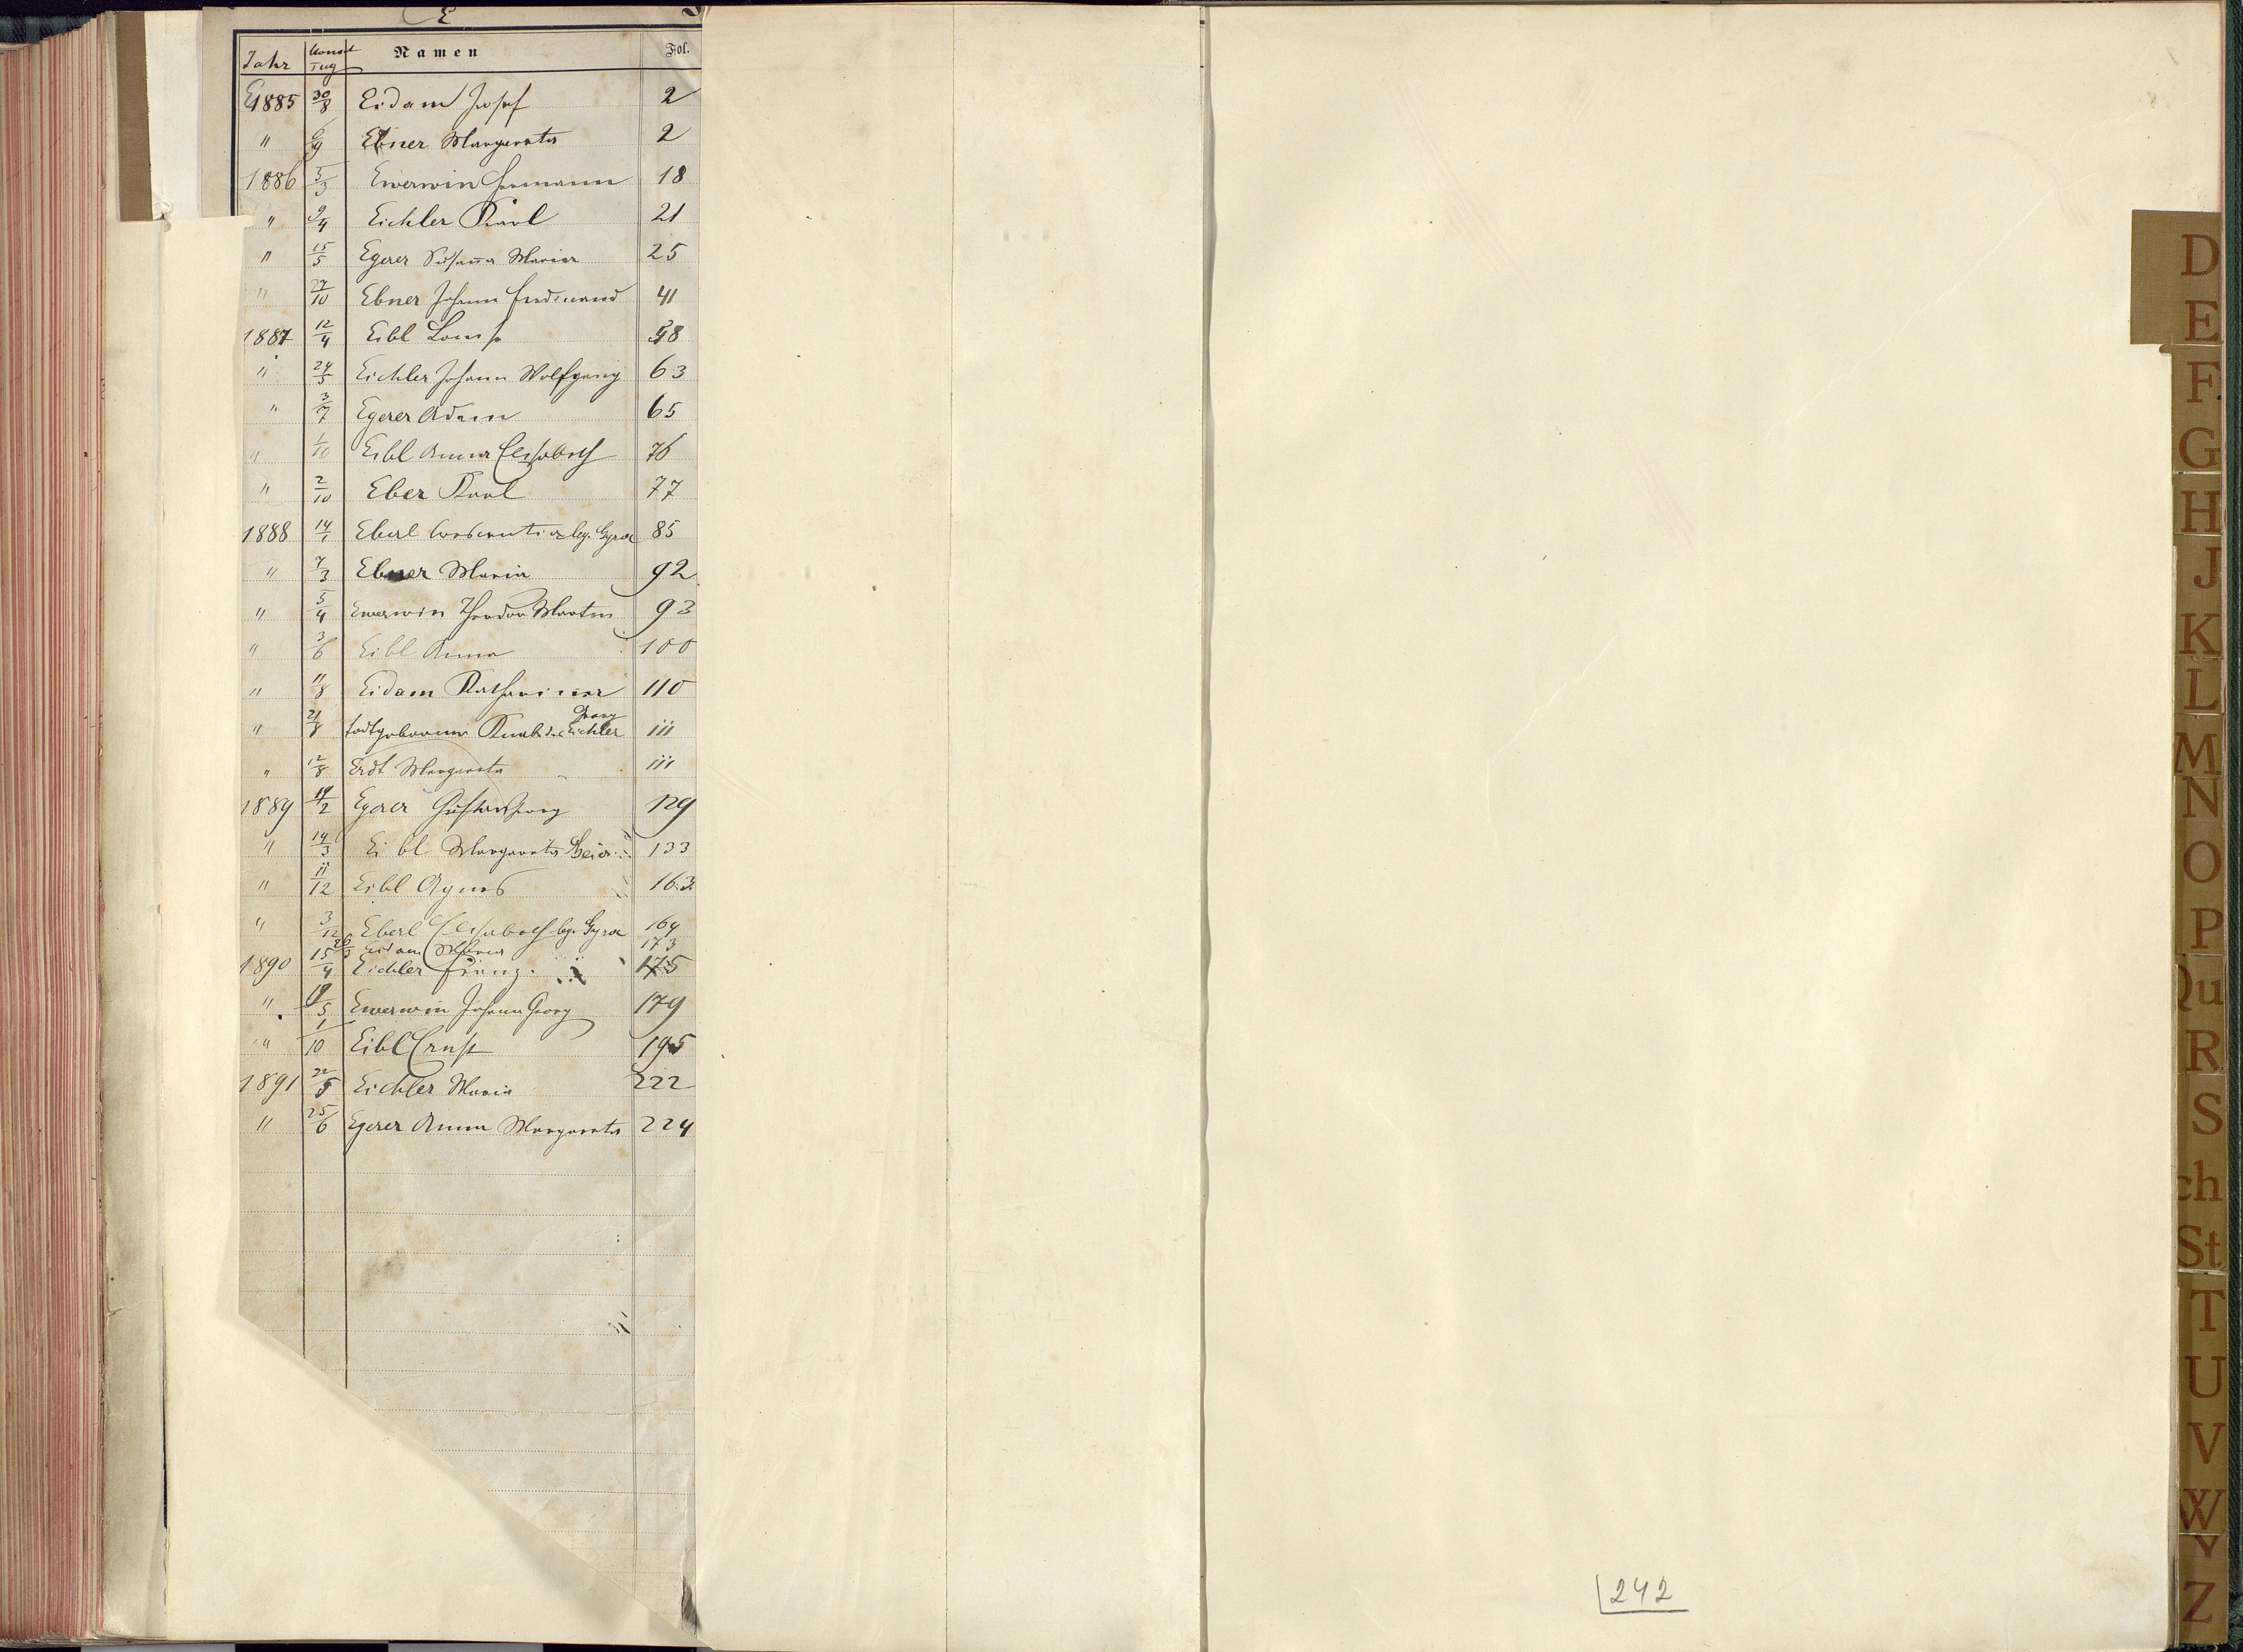 E
Jahr Monat Tag Namen Fol.
E1885 30/8 Eidam Josef 2
" 6/9 Ebner Margareta 2
1886 5/3 Ewerwin Hermann 18
" 9/4 Eichler Karl 21
" 15/5 Egerer Susanna Maria 25
" 27/10 Ebner Johann Ferdinand 41
1887 12/4 Eibl Louise 58
" 24/5 Eichler Johann Wolfgang 63
" 3/7 Egerer Adam 65
" 1/10 Eibl Anna Elisabeth 76
" 2/10 Eber Karl 77
1888 14/1 Eberl 85
" 7/3 Ebner Maria 92
" 5/4 Ewerwin Theodor Martin 93
" 3/6 Eibl Anna 100
" 11/8 Eidam Katharina 110
" 21/8 todtgeborner Knabe des Georg Eichler 111
" 12/8 Erdt Margareta 111
1889 19/2 Egerer Gustav Georg 129
" 14/3 Eibl Margareta 133
" 11/12 Eibl Agnes 163
" 3/12 Eberl Elisabeth 164
26/3 Eidam Maria 173
1890 15/4 Eichler Franz 175
" 19/5 Ewerwin Johann Georg 179
" 1/10 Eibl Ernst 195
1891 22/5 Eichler Maria 222
" 25/6 Egerer Anna Margareta 224
D
E
F
G
H
J
K
L
M
N
O
P
Qu
R
S
ch
St
T
U
V
W
Y
Z
242